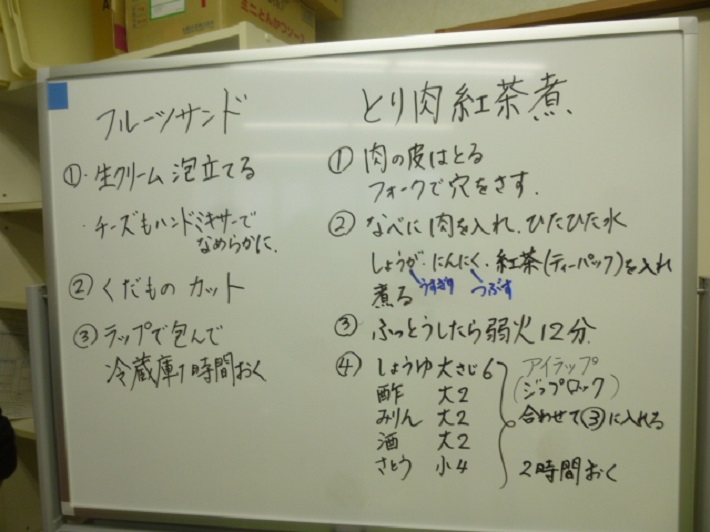 ミニとんかつソース
フルーツサンド
①・生クリーム 泡立てる
・チーズもハンドミキサーで
なめらかに.
② くだもの カット
③ ラップで包んで
冷蔵庫1時間おく
とり肉 紅茶煮
① 肉の皮はとる
フォークで穴をさす.
② なべに肉を入れ.ひたひた水
しょうが.にんにく.紅茶(ティーパック)を入れ
うすぎり つぶす
煮る
③ ふっとうしたら弱火12分.
④ しょうゆ 大さじ6
酢 大2
みりん 大2
酒 大2
さとう 小4
アイラップ
(ジップロック)
合わせて③に入れる
2時間おく